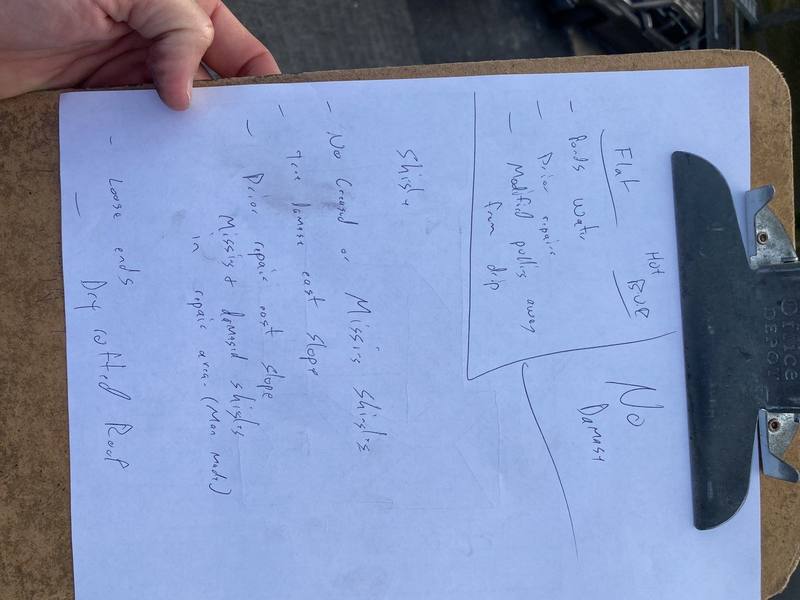 Office
DEPOT
Hot
Flat BUR
- Ponds water
- Prior repairs
- Modified pulling away
from drip
No
Damage
Shingle
- No Creased or Missing Shingles
- Tree damage east slope
- Prior repair east slope
Missing & damaged shingles
in repair area. (Man made)
- Loose ends
- Dry rotted Roof